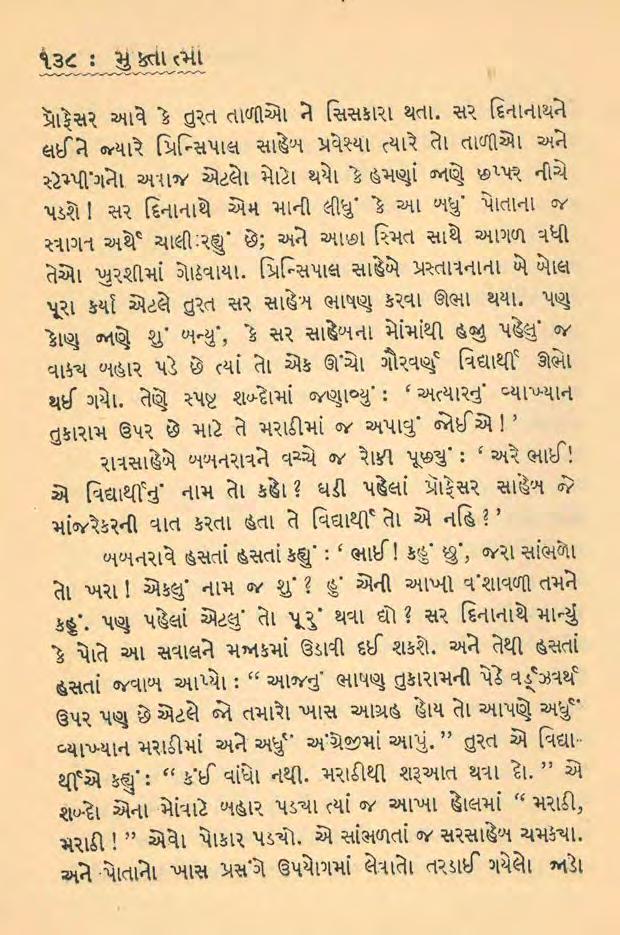 ૧૩૮ : મુક્તાત્મા
પ્રોફેસર આવે કે તુરત તાળીઓ ને સિસકારા થતા. સર દિનાનાથને
લઈને જ્યારે પ્રિન્સિપાલ સાહેબ પ્રવેશ્યા ત્યારે તો તાળીઓ અને
સ્ટેમ્પીંગનો અવાજ એટલો મોટો થયો કે હમણાં જાણે છાપર નીચે
પડશે! સર દિનાનાથે એમ માની લીધું કે આ બધું પોતાના જ
સ્વાગત અર્થે ચાલી રહ્યું છે; અને આછા સ્મિત સાથે આગળ વધી
તેઓ ખુરશીમાં ગોઠવાયા. પ્રિન્સિપાલ સાહેબે પ્રસ્તાવનાના બે બોલ
પૂરા કર્યા એટલે તુરત સર સાહેબ ભાષણ કરવા ઊભા થયા. પણ
કોણ જાણે શું બન્યું, કે સર સાહેબના મોંમાંથી હજી પહેલું જ
વાક્ય બહાર પડે છે ત્યાં તો એક ઊંચો ગૌરવર્ણી વિદ્યાર્થી ઊભો
થઈ ગયો. તેણે સ્પષ્ટ શબ્દોમાં જણાવ્યું : ‘અત્યારનું વ્યાખ્યાન
તુકારામ ઉપર છે માટે તે મરાઠીમાં જ અપાવું જોઈએ!’
રાવસાહેબે બબનરાવને વચ્ચે જ રોકી પૂછ્યું : ‘અરે ભાઈ!
એ વિદ્યાર્થીનું નામ તો કહો? ઘડી પહેલાં પ્રોફેસર સાહેબ જે
માંજરેકરની વાત કરતા હતા તે વિદ્યાર્થી તો એ નહિ?’
બબનરાવે હસતાં હસતાં કહ્યું : ‘ભાઈ! કહું છું, જરા સાંભળો
તો ખરા! એકલું નામ જ શું? હું એની આખી વંશાવળી તમને
કહું. પણ પહેલાં એટલું તો પૂરું થવા દ્યો? સર દિનાનાથે માન્યું
કે પોતે આ સવાલને મજાકમાં ઉડાવી દઈ શકશે. અને તેથી હસતાં
હસતાં જવાબ આપ્યો : “આજનું ભાષણ તુકારામની પેઠે વર્ડ્ઝવર્થ
ઉપર પણ છે એટલે જો તમારો ખાસ આગ્રહ હોય તો આપણે અર્ધું
વ્યાખ્યાન મરાઠીમાં અને અર્ધું અંગ્રેજીમાં આપું.” તુરત એ વિદ્યા-
ર્થીએ કહ્યું : “કંઈ વાંધો નથી. મરાઠીથી શરૂઆત થવા દો.” એ
શબ્દો એના મોંવાટે બહાર પડ્યા ત્યાં જ આખા હોલમાં “મરાઠી,
મરાઠી!” એવો પોકાર પડ્યો. એ સાંભળતાં જ સરસાહેબ ચમક્યા.
અને પોતાનો ખાસ પ્રસંગે ઉપયોગમાં લેવાતો તરડાઈ ગયેલો જાડો